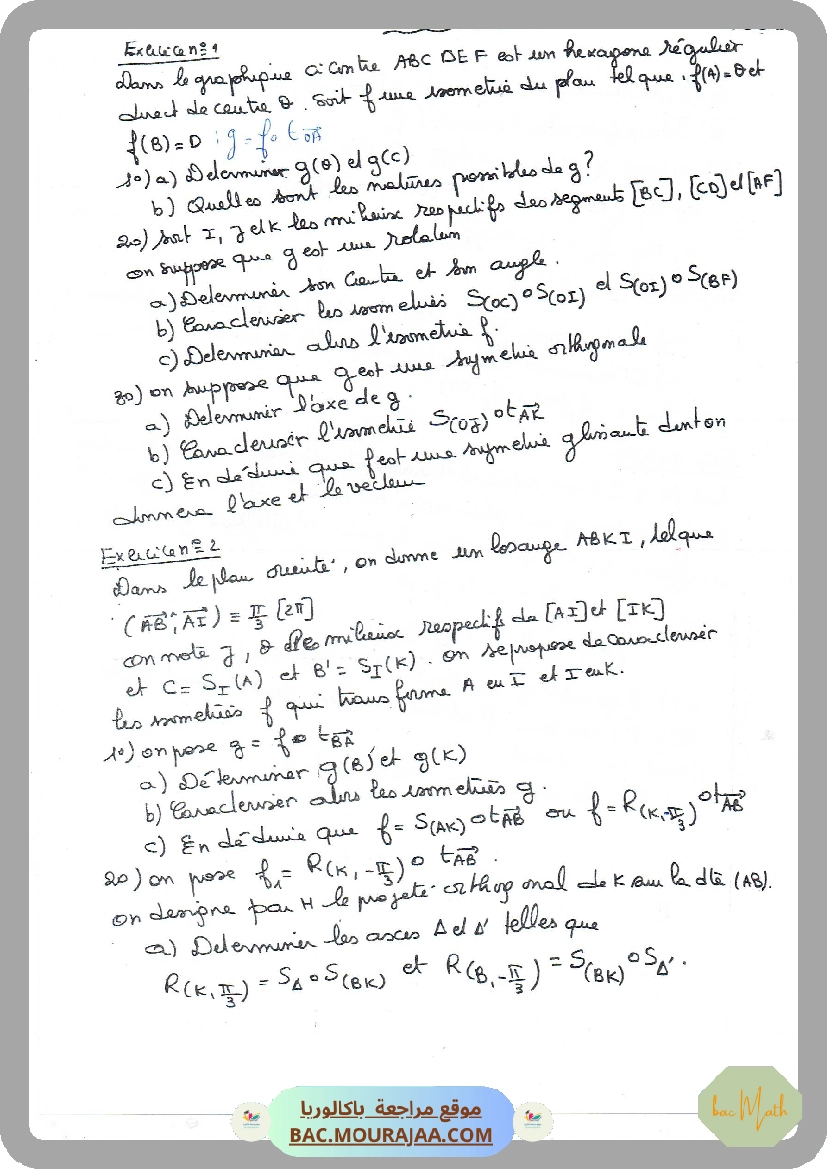 Exercice n° 1
Dans le graphique ci-contre ABCDEF est un hexagone régulier
direct de centre O. Soit f une isometrie du plan tel que . f(A)=O et
f(B)=D ; g = f∘t_OA→
1°) a) Déterminer g(O) et g(C)
b) Quelles sont les natures possibles de g ?
2°) soit I, J et K les milieux respectifs des segments [BC], [CD] et [AF]
on suppose que g est une rotation
a) Determiner son Centre et son angle.
b) Caracteriser les isometries S(OC)∘S(OI) et S(OI)∘S(BF)
c) Determiner alors l'isometrie f.
3°) on suppose que g est une symetrie orthogonale
a) Determiner l'axe de g.
b) Caracteriser l'isometrie S(OJ)∘t_AK→
c) En déduire que f est une symetrie glissante dont on
donnera l'axe et le vecteur
Exercice n° 2
Dans le plan orienté, on donne un losange ABKI, tel que
(AB→ ^ AI→) ≡ π/3 [2π]
on note J, O les milieux respectifs de [AI] et [IK]
et C = S_I(A) et B' = S_I(K). on se propose de caracteriser
les isometries f qui transforme A en I et I en K.
1°) on pose g = f∘t_BA→
a) Déterminer g(B) et g(K)
b) Caracteriser alors les isometries g.
c) En déduire que f = S(AK)∘t_AB→ ou f = R(K,-π/3)∘t_AB→
2°) on pose f₁ = R(K,-π/3)∘t_AB→.
on designe par H le projeté orthogonal de K sur la dte (AB).
a) Determiner les axes Δ et Δ' telles que
R(K,π/3) = S_Δ∘S(BK) et R(B,-π/3) = S(BK)∘S_Δ'.
موقع مراجعة باكالوريا
BAC.MOURAJAA.COM
bac Math